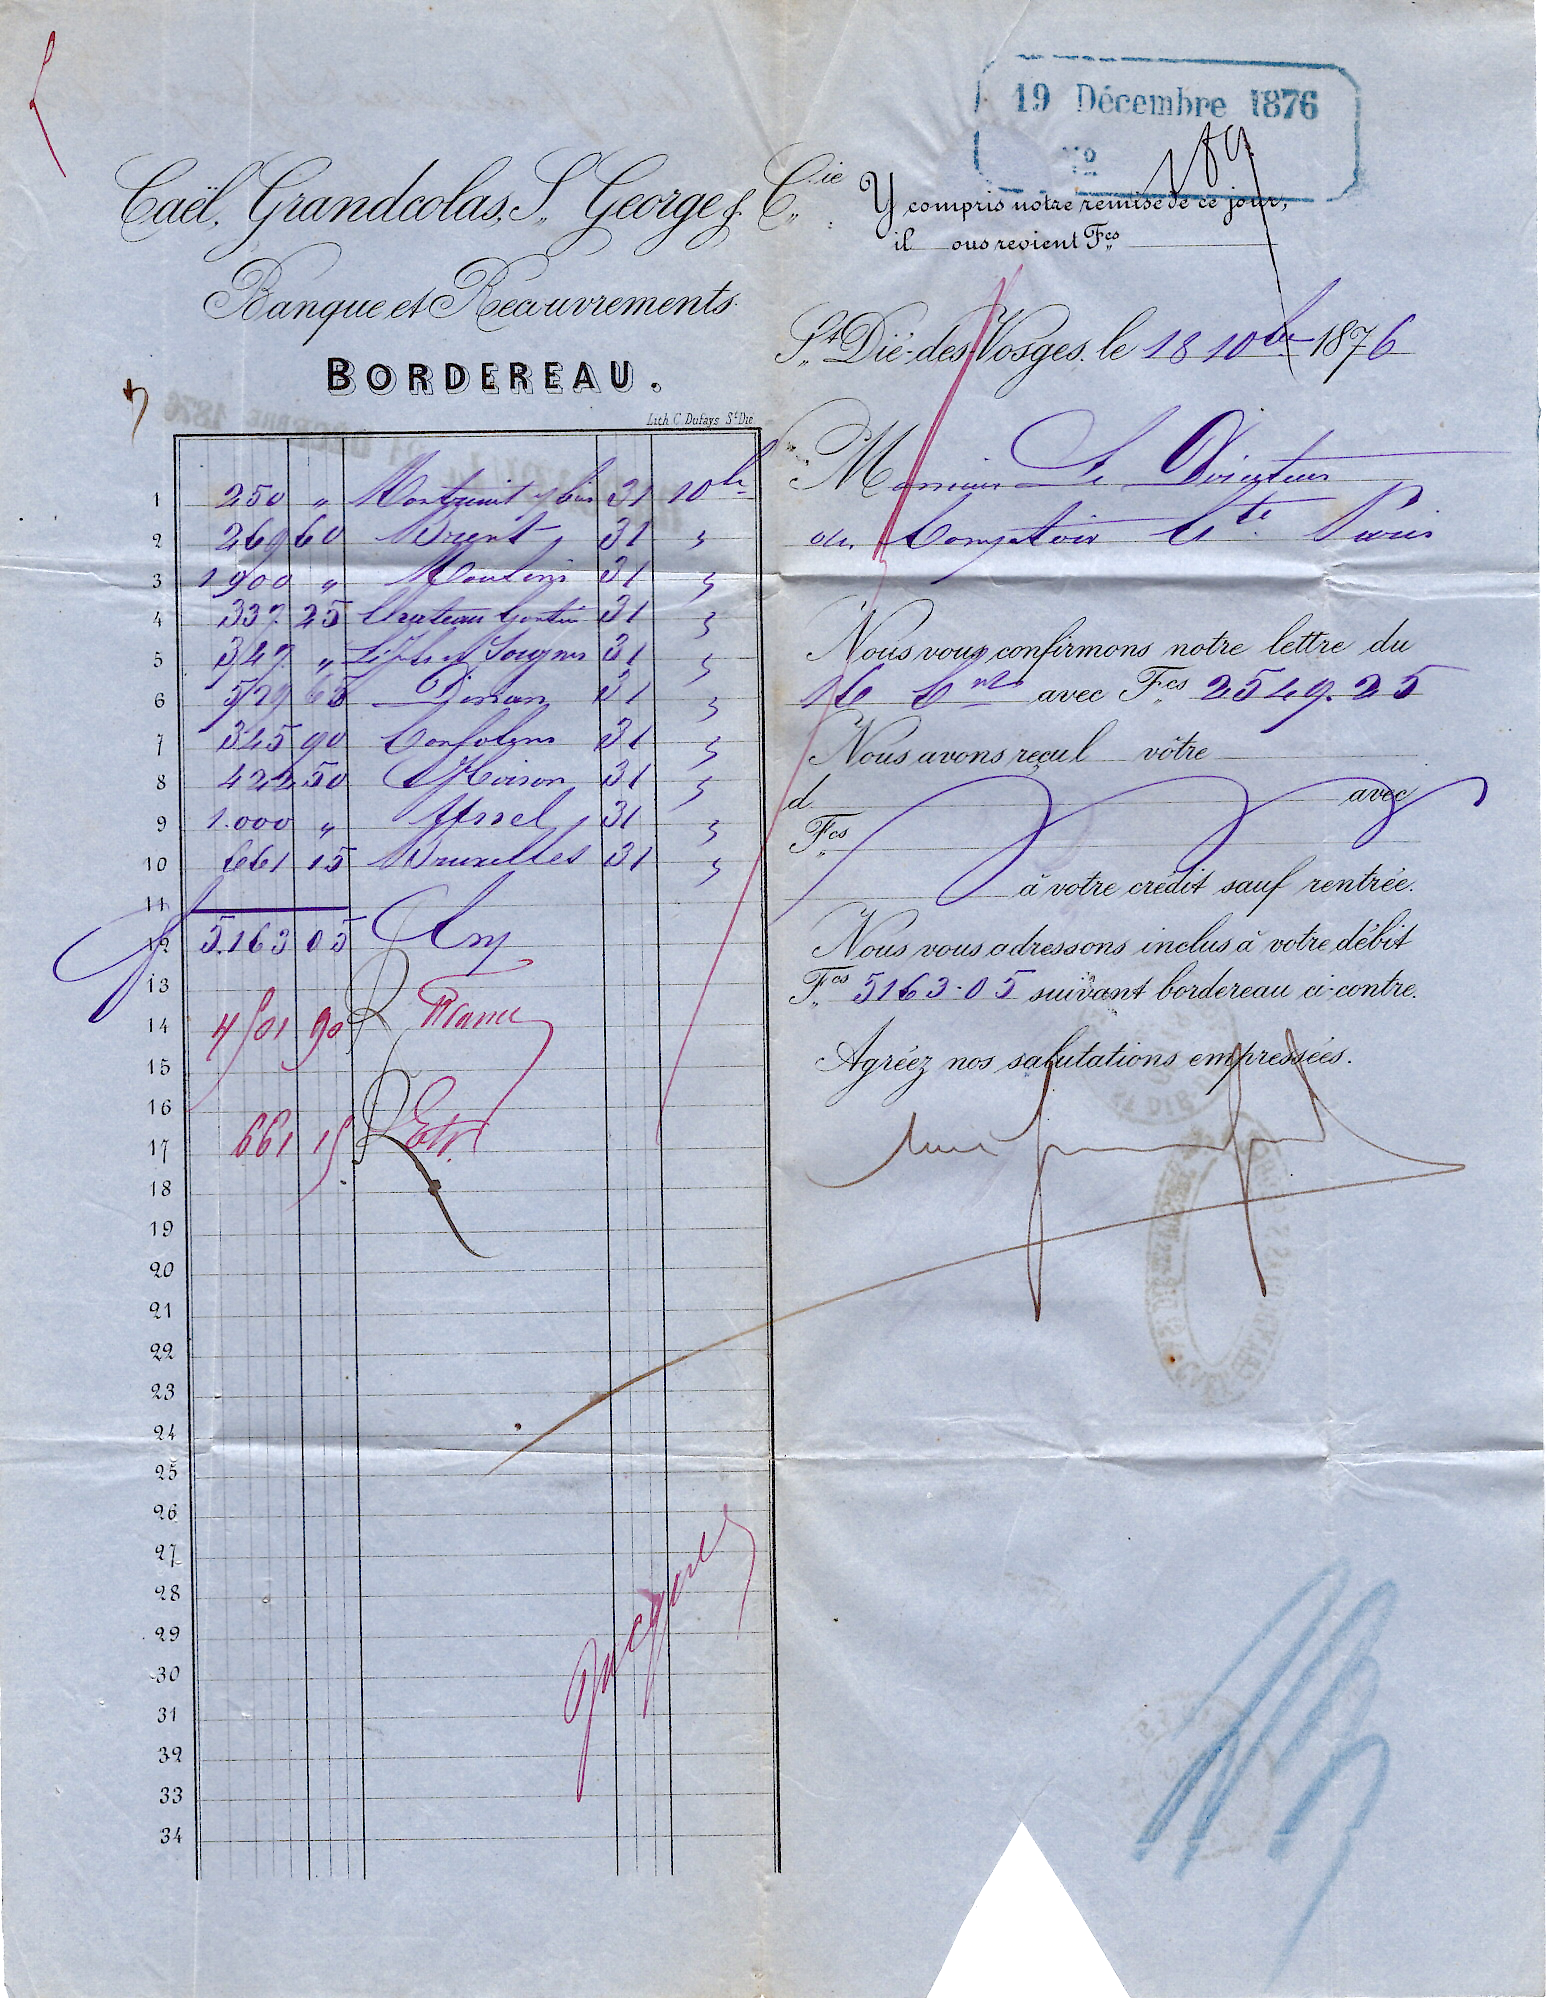 19 Décembre 1876
No
189
Caël, Grandcolas, St George & Cie
Banque et Recouvrements.
BORDEREAU.
Lith. C. Dufays St Dié
1 250 " Montreuil s/bois 31 10bre
2 269 60 31 "
3 1900 " Moulins 31 "
4 337 25 Chateau Gontier 31 "
5 347 " 31 "
6 529 65 Dinan 31 "
7 345 90 Confolens 31 "
8 422 50 31 "
9 1.000 " Ussel 31 "
10 661 15 Bruxelles 31 "
11
12 5.163 05
13
14 4501 90 France
15
16
17 661 15 Etr.
18
19
20
21
22
23
24
25
26
27
28
29
30
31
32
33
34
Y compris notre remise de ce jour,
il ous revient Fcs
St Dié-des-Vosges, le 18 10bre 1876
Monsieur Le Directeur
du Comptoir Cte Paris
Nous vous confirmons notre lettre du
16 Ct avec Fcs 2549.25
Nous avons reçu l vôtre
d avec
Fcs
à votre crédit sauf rentrée.
Nous vous adressons inclus à votre débit
Fcs 5163.05 suivant bordereau ci-contre.
Agréez nos salutations empressées.